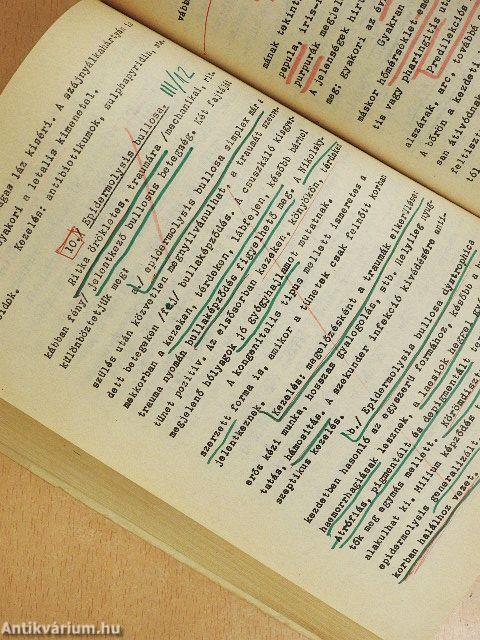 magas láz kíséri. A szájnyálkahártyás is
gyakori a letalis kimenetel.
Kezelés: antibiotikumok, sulphapyridin,
oldok.
III/12
10./ Epidermolysis bullosa.
Ritka örökletes, traumára /mechanikai, rit-
kábban fény/ jelentkező bullosus betegség. Két fajtáját
különböztetjük meg:
a/ epidermolysis bullosa simplex már a
szülés után közvetlen megnyilvánulhat, a traumát szenve-
dett betegeken /fej/ bullaképződés. A csuszkáló kisgyer-
mekkorban a kezeken, térdeken, lábfejen, később bárhol
trauma nyomán bullaképződés figyelhető meg. A Nikolsky-
tünet positiv. Az elsősorban kezeken, könyökön, térdeken
megjelenő hólyagok jó gyógyhajlamot mutatnak.
A kongenitalis tipus mellett ismeretes a
szerzett forma is, amikor a tünetek csak felnőtt korban
jelentkeznek.
Kezelés: megelőzésként a traumák elkerülése:
erős kézi munka, hosszas gyalogolás, stb. Helyileg nyug-
tatás, hámosítás. A szekunder infekció kivédésére anti-
szeptikus kezelés.
b./ Epidermolysis bullosa dystrophica
kezdetben hasonló az egyszerű formához, később a
haemorrhagiásak lesznek, a laesiók heggel
Atrófiás, pigmentált és depigmentált
tők meg egymás mellett. Körömdisz
alakulhat ki. Milium képződés
epidermolysis generalizált
korban halálhoz vezet.
vábbi
sának tekint
papula, iris-
purpurák megjel
A jelenségek hir
meg; gyakori az
Gyakran
máskor hőmérséklet
pharingitis
tis vagy
Predilekciós
alszárak, arc, továbbá
A bőrön a kezdeti
san átivódnak
feltiszt
tól
Antikvárium.hu